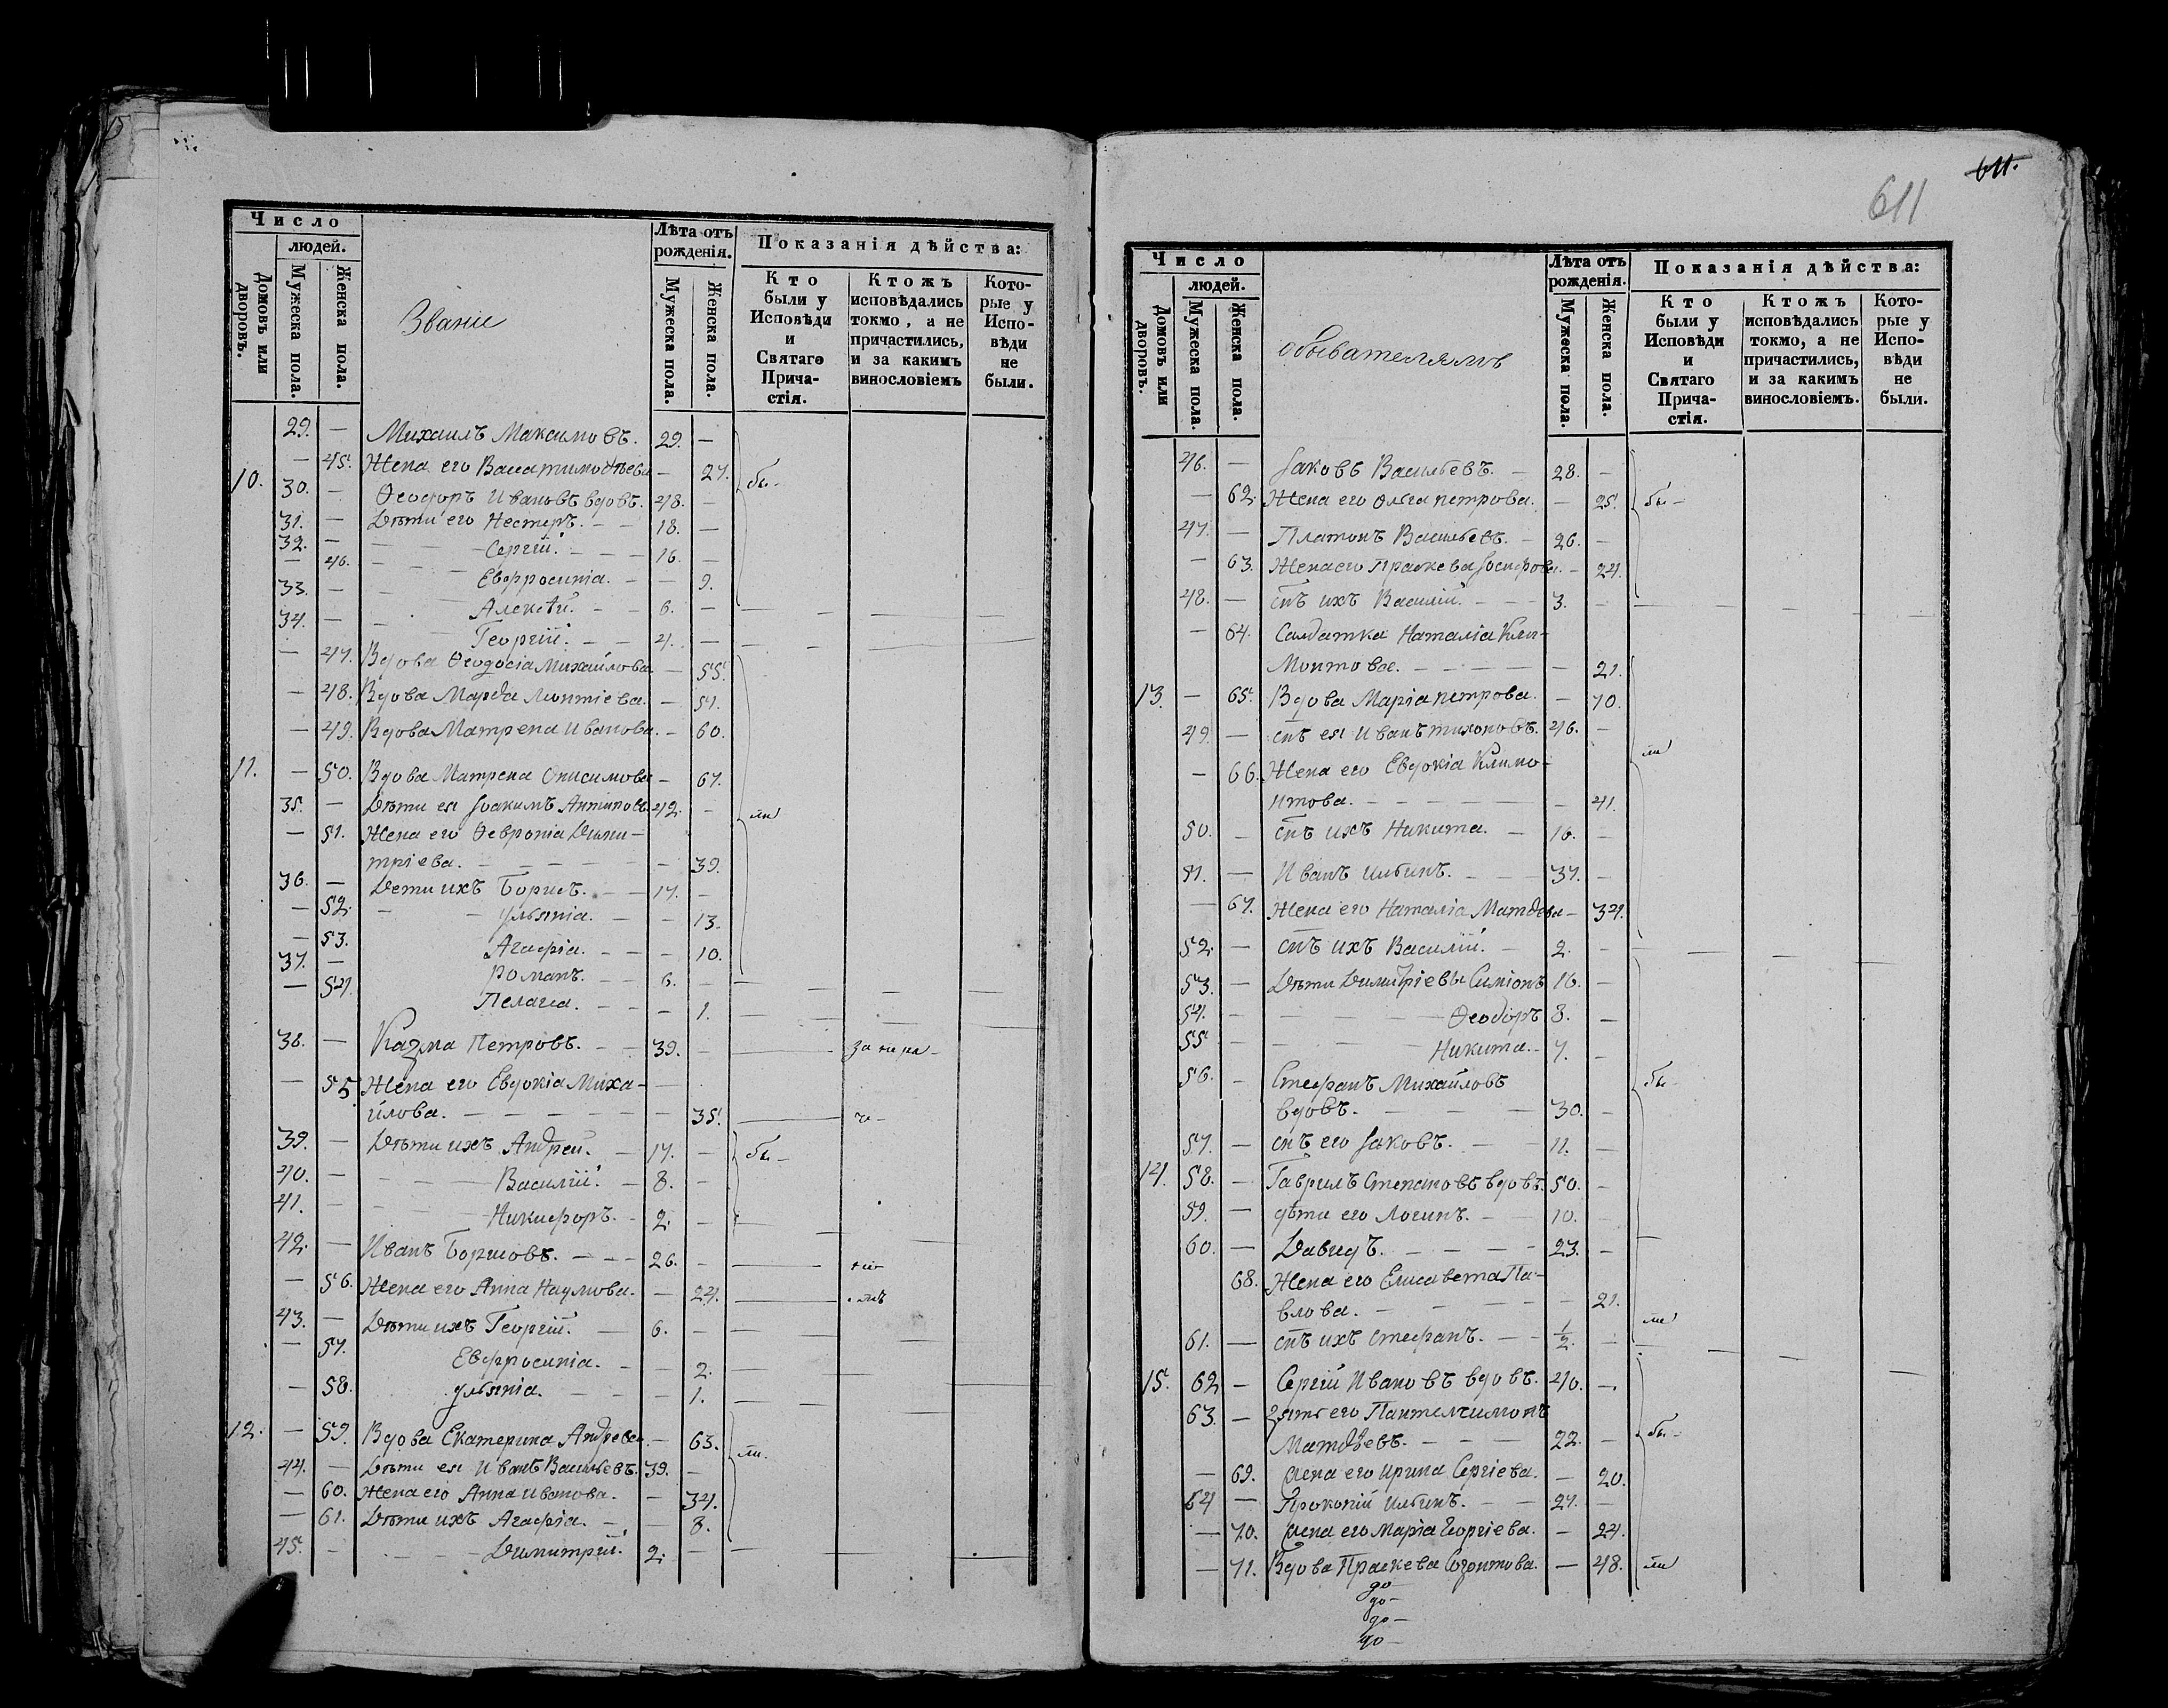 Число
людей.
Домовъ или дворовъ.
Мужеска пола.
Женска пола.
Званіе
Лѣта отъ рожденія.
Мужеска пола.
Женска пола.
Показанія дѣйства:
Кто были у Исповѣди и Святаго Прича-стія.
Ктожъ исповѣдались токмо, а не причастились, и за какимъ винословіемъ
Кото-рые у Испо-вѣди не были.
29. — Михаилъ Максимовъ. 29. —
— 45. Жена его Васса — 27.
10. 30. — Ѳеодоръ Ивановъ вдовъ. 48. — бы-
31. — Дѣти его Нестеръ. — — 18. —
32. — Сергій. — — — 16. —
— 46. Евфросинія. — — 9.
33. — Алексѣй. — — 6. —
34. — Георгій. — — 4. —
— 47. Вдова Ѳеодосія Михайлова. — 55.
— 48. Вдова Марѳа — 54.
— 49. Вдова Матрена Иванова. — 60.
11. — 50. Вдова Матрена Онисимова — 67.
35. — Дѣти ея Іоакимъ Антиповъ. 42. — ли
— 51. Жена его Ѳевронія Дими-
тріева. — — — — — 39.
36. — Дети ихъ Борисъ. — — 17. —
— 52. Ульянія. — — 13.
— 53. Агафія. — — — 10.
37. — Романъ. — — 6. —
— 54. Пелагіа. — — — 1.
38. — Казма Петровъ. — — 39. —
— 55. Жена его Евдокіа Миха- —
йлова. — — — — — — 35.
39. — Дѣти ихъ Андрей. — 17. — бы-
40. — Василій. — 8. —
41. — Никифоръ. — 2. —
42. — Иванъ Борисовъ. — — 26. —
— 56. Жена его Анна Наумова. — 24.
43. — Дѣти ихъ Георгій. — 6. —
— 57. Евфросинія. — — 2.
— 58. Ульянія. — — — 1.
12. — 59. Вдова Екатерина Андреева — 63. ли.
44. — Дѣти ея Иванъ Васильевъ. 39. —
— 60. Жена его Анна Иванова. — 34.
— 61. Дѣти ихъ Агафіа. — — 8.
45. — Димитрій. 2. —
611.
611
Число
людей.
Домовъ или дворовъ.
Мужеска пола.
Женска пола.
обывателямъ
Лѣта отъ рожденія.
Мужеска пола.
Женска пола.
Показанія дѣйства:
Кто были у Исповѣди и Святаго Прича-стія.
Ктожъ исповѣдались токмо, а не причастились, и за какимъ винословіемъ.
Кото-рые у Испо-вѣди не были.
46. — Іаковъ Васильевъ. — 28. —
— 62. Жена его Ольга Петрова. — 25. бы-
47. — Платонъ Васильевъ. — 26. —
— 63. Жена его Праскева Іосифова. — 24.
48. — снъ ихъ Василій. — — — 3. —
— 64. Салдатка Наталіа Кли-
Монтова. — — — — — 21.
13. — 65. Вдова Маріа Петрова. — 70.
49. — снъ ея Иванъ Тихоновъ. 46. —
— 66. Жена его Евдокіа Климо- ли
нтова. — — — — — 41.
50. — снъ ихъ Никита. — 16. —
51. — Иванъ Ильинъ. — — — 37. —
— 67. Жена его Наталіа Матѳева — 34.
52. — снъ ихъ Василій. — 2. —
53. — Дѣти Димитріевы Симіонъ 16. —
54. — — — — Ѳеодоръ 8. —
55 — — — — Никита. — 7. —
56. — Стефанъ Михайловъ бы-
вдовъ. — — — 30. —
57. — снъ его Іаковъ. — — 11. —
14. 58. — Гаврилъ Степановъ вдовъ. 50. —
59. — дѣти его Логинъ. — — 10. —
60. — Давидъ. — — — — 23. —
68. Жена его Елисавета Па-
влова. — — — — — 21.
61. — снъ ихъ Стефанъ. — — 1/2. — ли
15. 62 — Сергій Ивановъ вдовъ. 40. —
63. — Зять его Пантелеимонъ
Матѳѣевъ. — — — 22. — бы-
— 69. Жена его Ирина Сергіева. — 20.
64 — Прокопій Ильинъ. — — 27. —
— 70. Жена его Маріа Георгіева. — 24.
— 71. Вдова Праскева Созонтова. — 48. ли
до-
до-
до-
до-